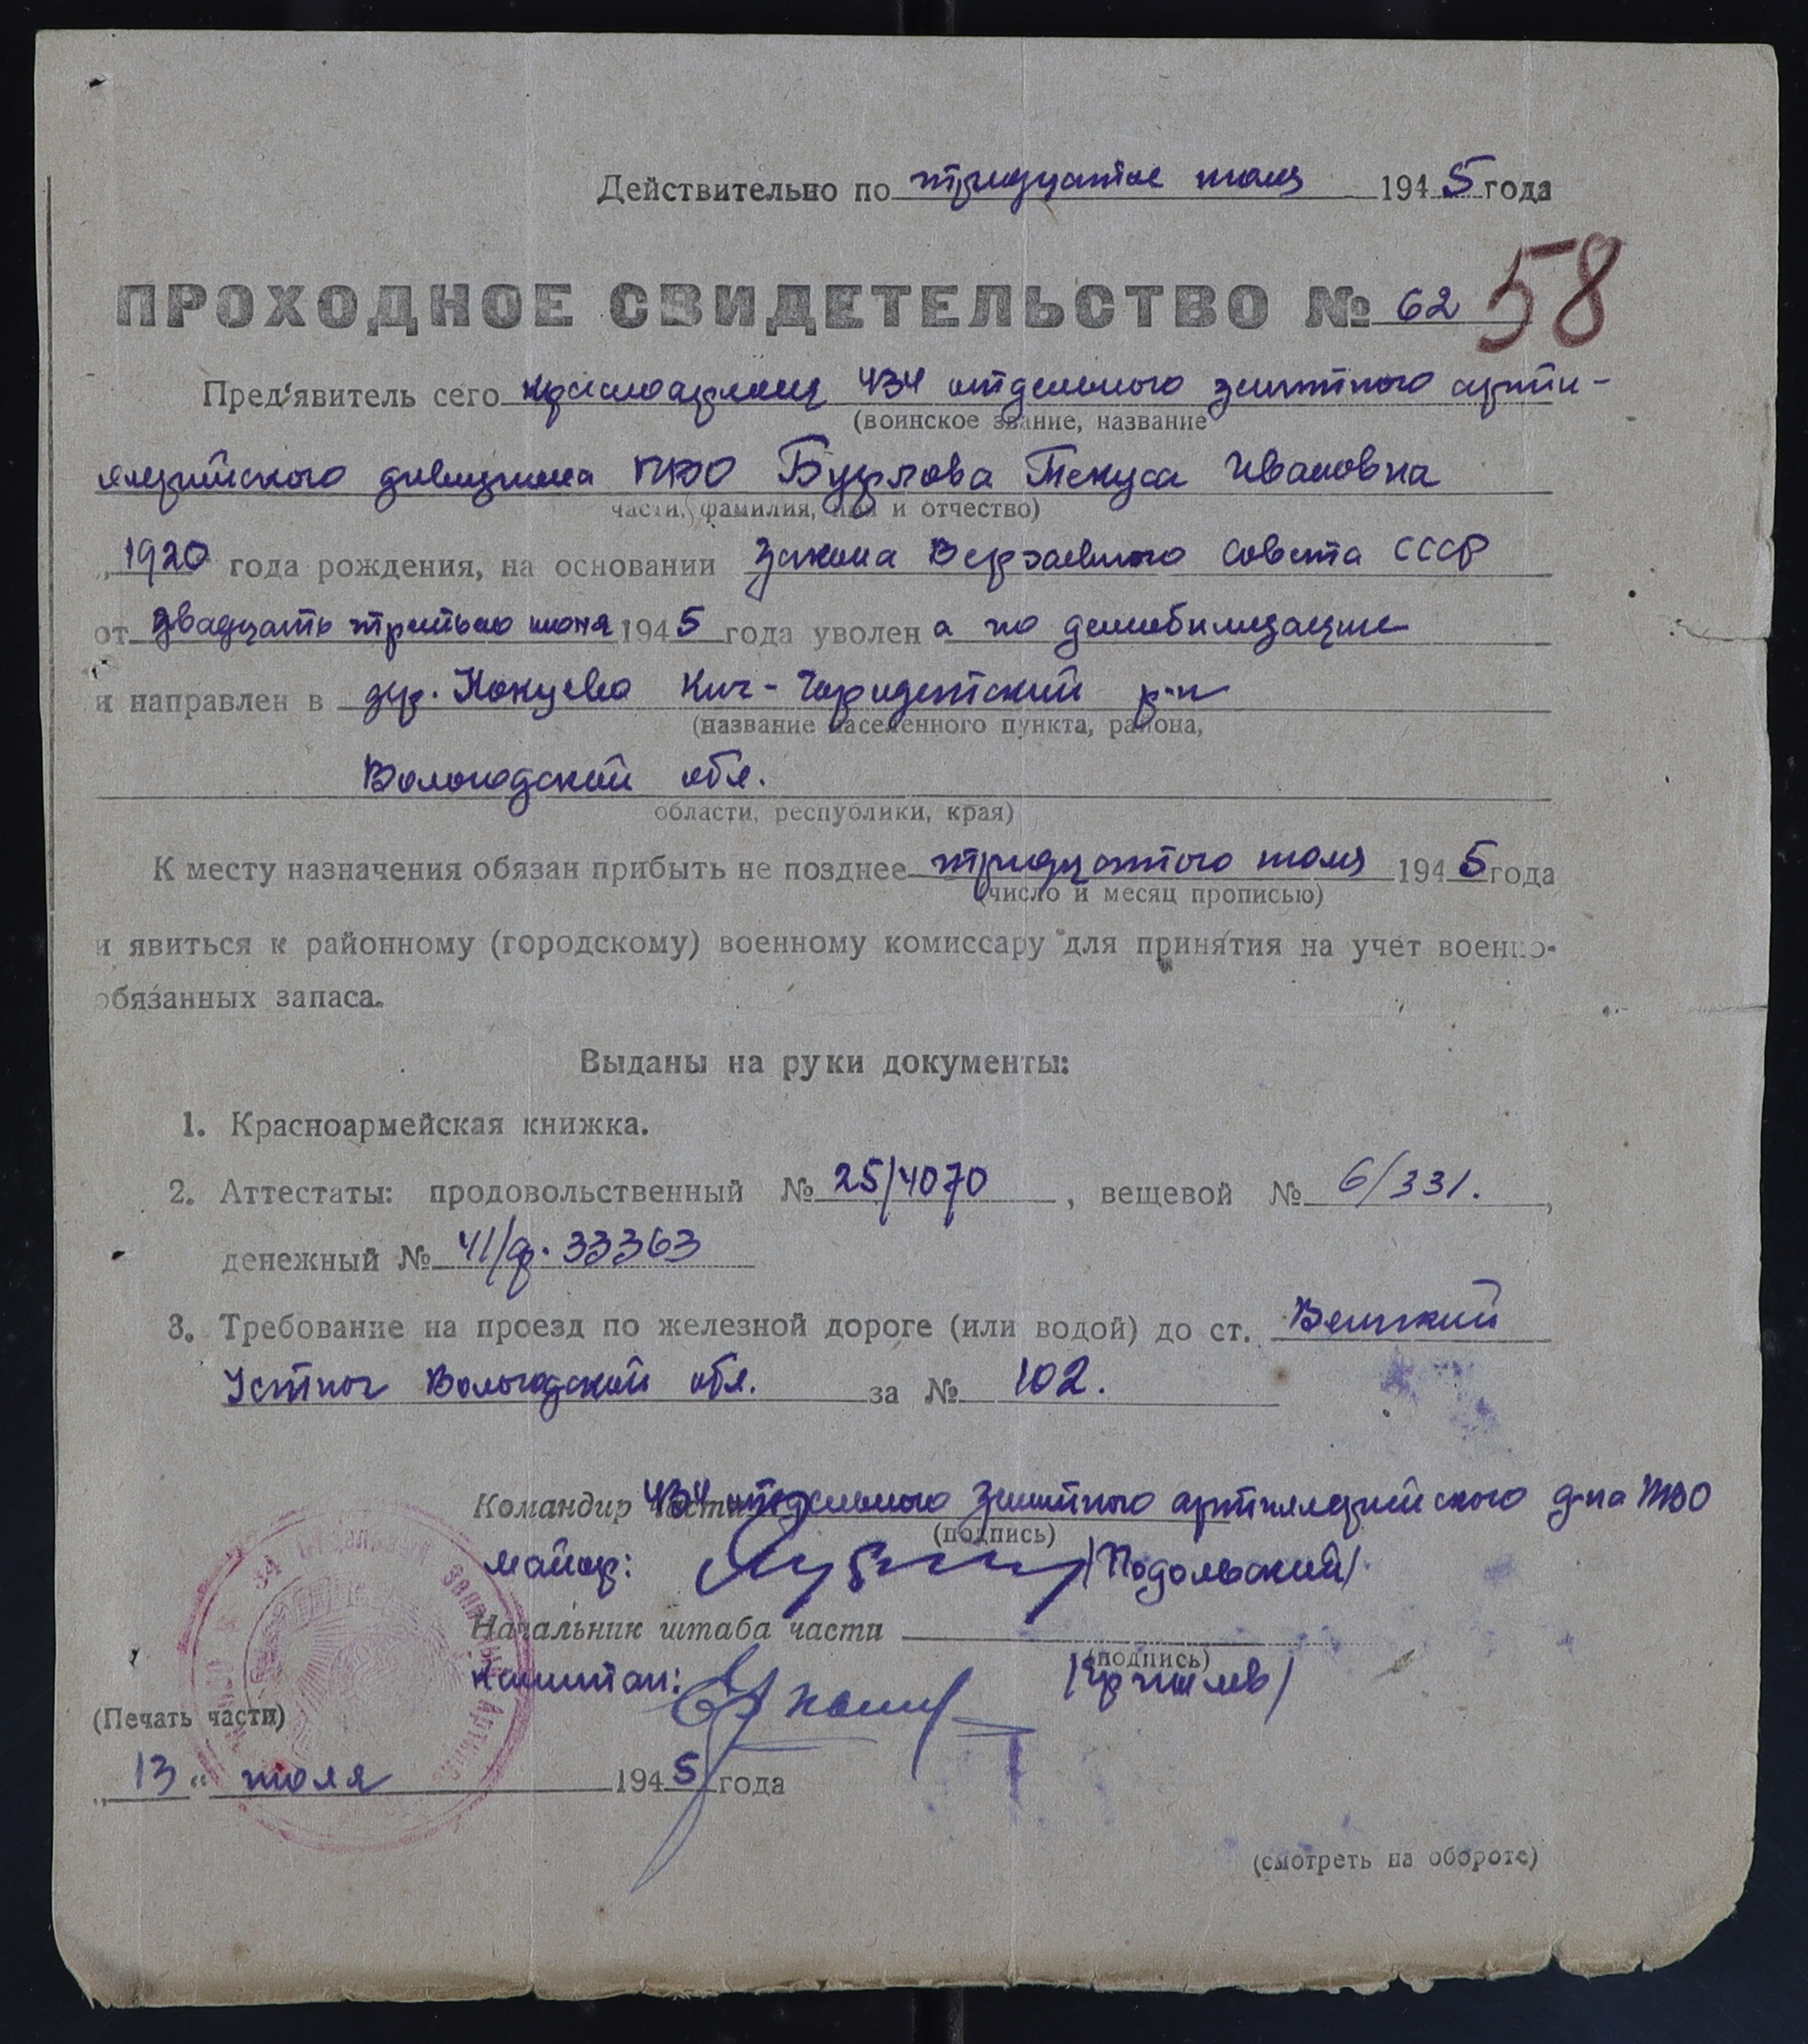 Действительно по тридцатое июля 1945 года
ПРОХОДНОЕ СВИДЕТЕЛЬСТВО № 62 58
Пред'явитель сего красноармеец 434 отдельного зенитного арти-
(воинское звание, название
ллерийского дивизиона ПВО Бурлова Текуса Ивановна
части, фамилия, имя и отчество)
„1920 года рождения, на основании Закона Верховного Совета СССР
от двадцать третьего июня 1945 года уволен а по демобилизации
и направлен в дер. Кич-Городетский р-н
(название населенного пункта, района,
Вологодской обл.
области, республики, края)
К месту назначения обязан прибыть не позднее тридцатого июля 1945 года
(число и месяц прописью)
и явиться к районному (городскому) военному комиссару для принятия на учет военно-
обязанных запаса.
Выданы на руки документы:
1. Красноармейская книжка.
2. Аттестаты: продовольственный № 25/4070, вещевой № 6/331.,
денежный № 41/ф. 33363
3. Требование на проезд по железной дороге (или водой) до ст. Великий
Устюг Вологодской обл. за № 102.
Командир части 434 отдельного зенитного артиллерийского д-на ПВО
(подпись)
майор: /Подольский/
Начальник штаба части
(подпись)
капитан:
(Печать части)
„13 “ июля 1945 года
(смотреть на обороте)